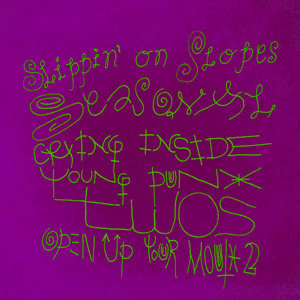 Slippin' on Slopes
Seasonal
CRYING INSIDE
YOUNG PUNX
TWOS
OPEN UP YOUR MOUTH 2